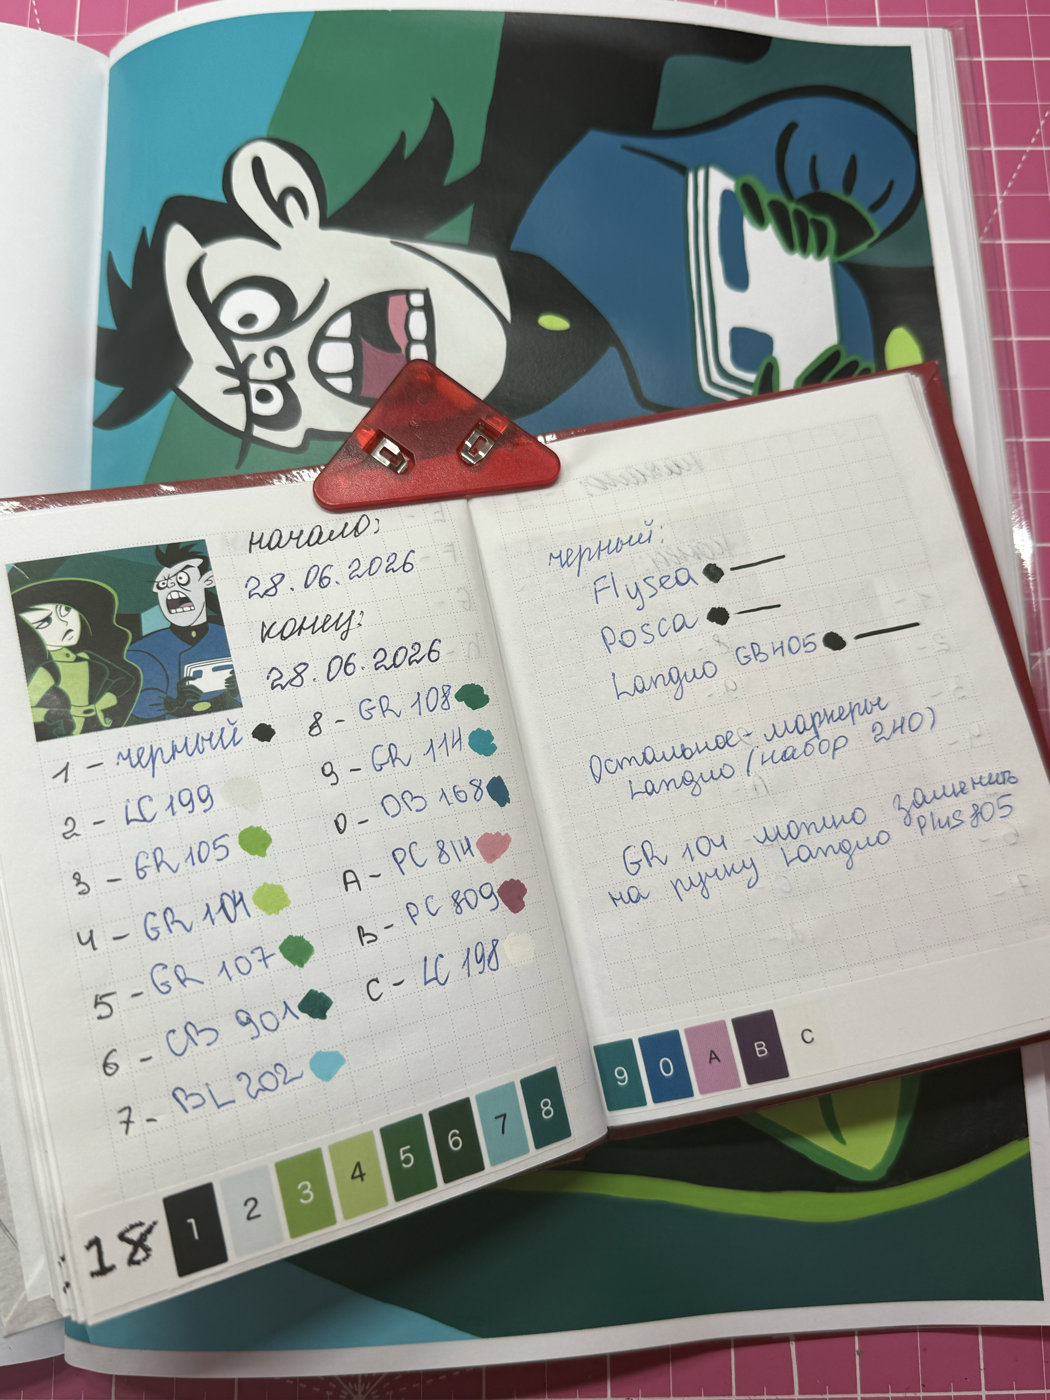 начало:
28.06.2026
конец:
28.06.2026
1 - черный
2 - LC 199
3 - GR 105
4 - GR 104
5 - GR 107
6 - CB 901
7 - BL 202
8 - GR 108
9 - GR 114
0 - DB 168
A - PC 814
B - PC 809
C - LC 198
18
1 2 3 4 5 6 7 8
черный:
Flysea
Posca
Languo GB405
Остальное - маркеры
Languo (набор 240)
GR 104 можно заменить
на ручку Languo Plus 805
9 0 A B C